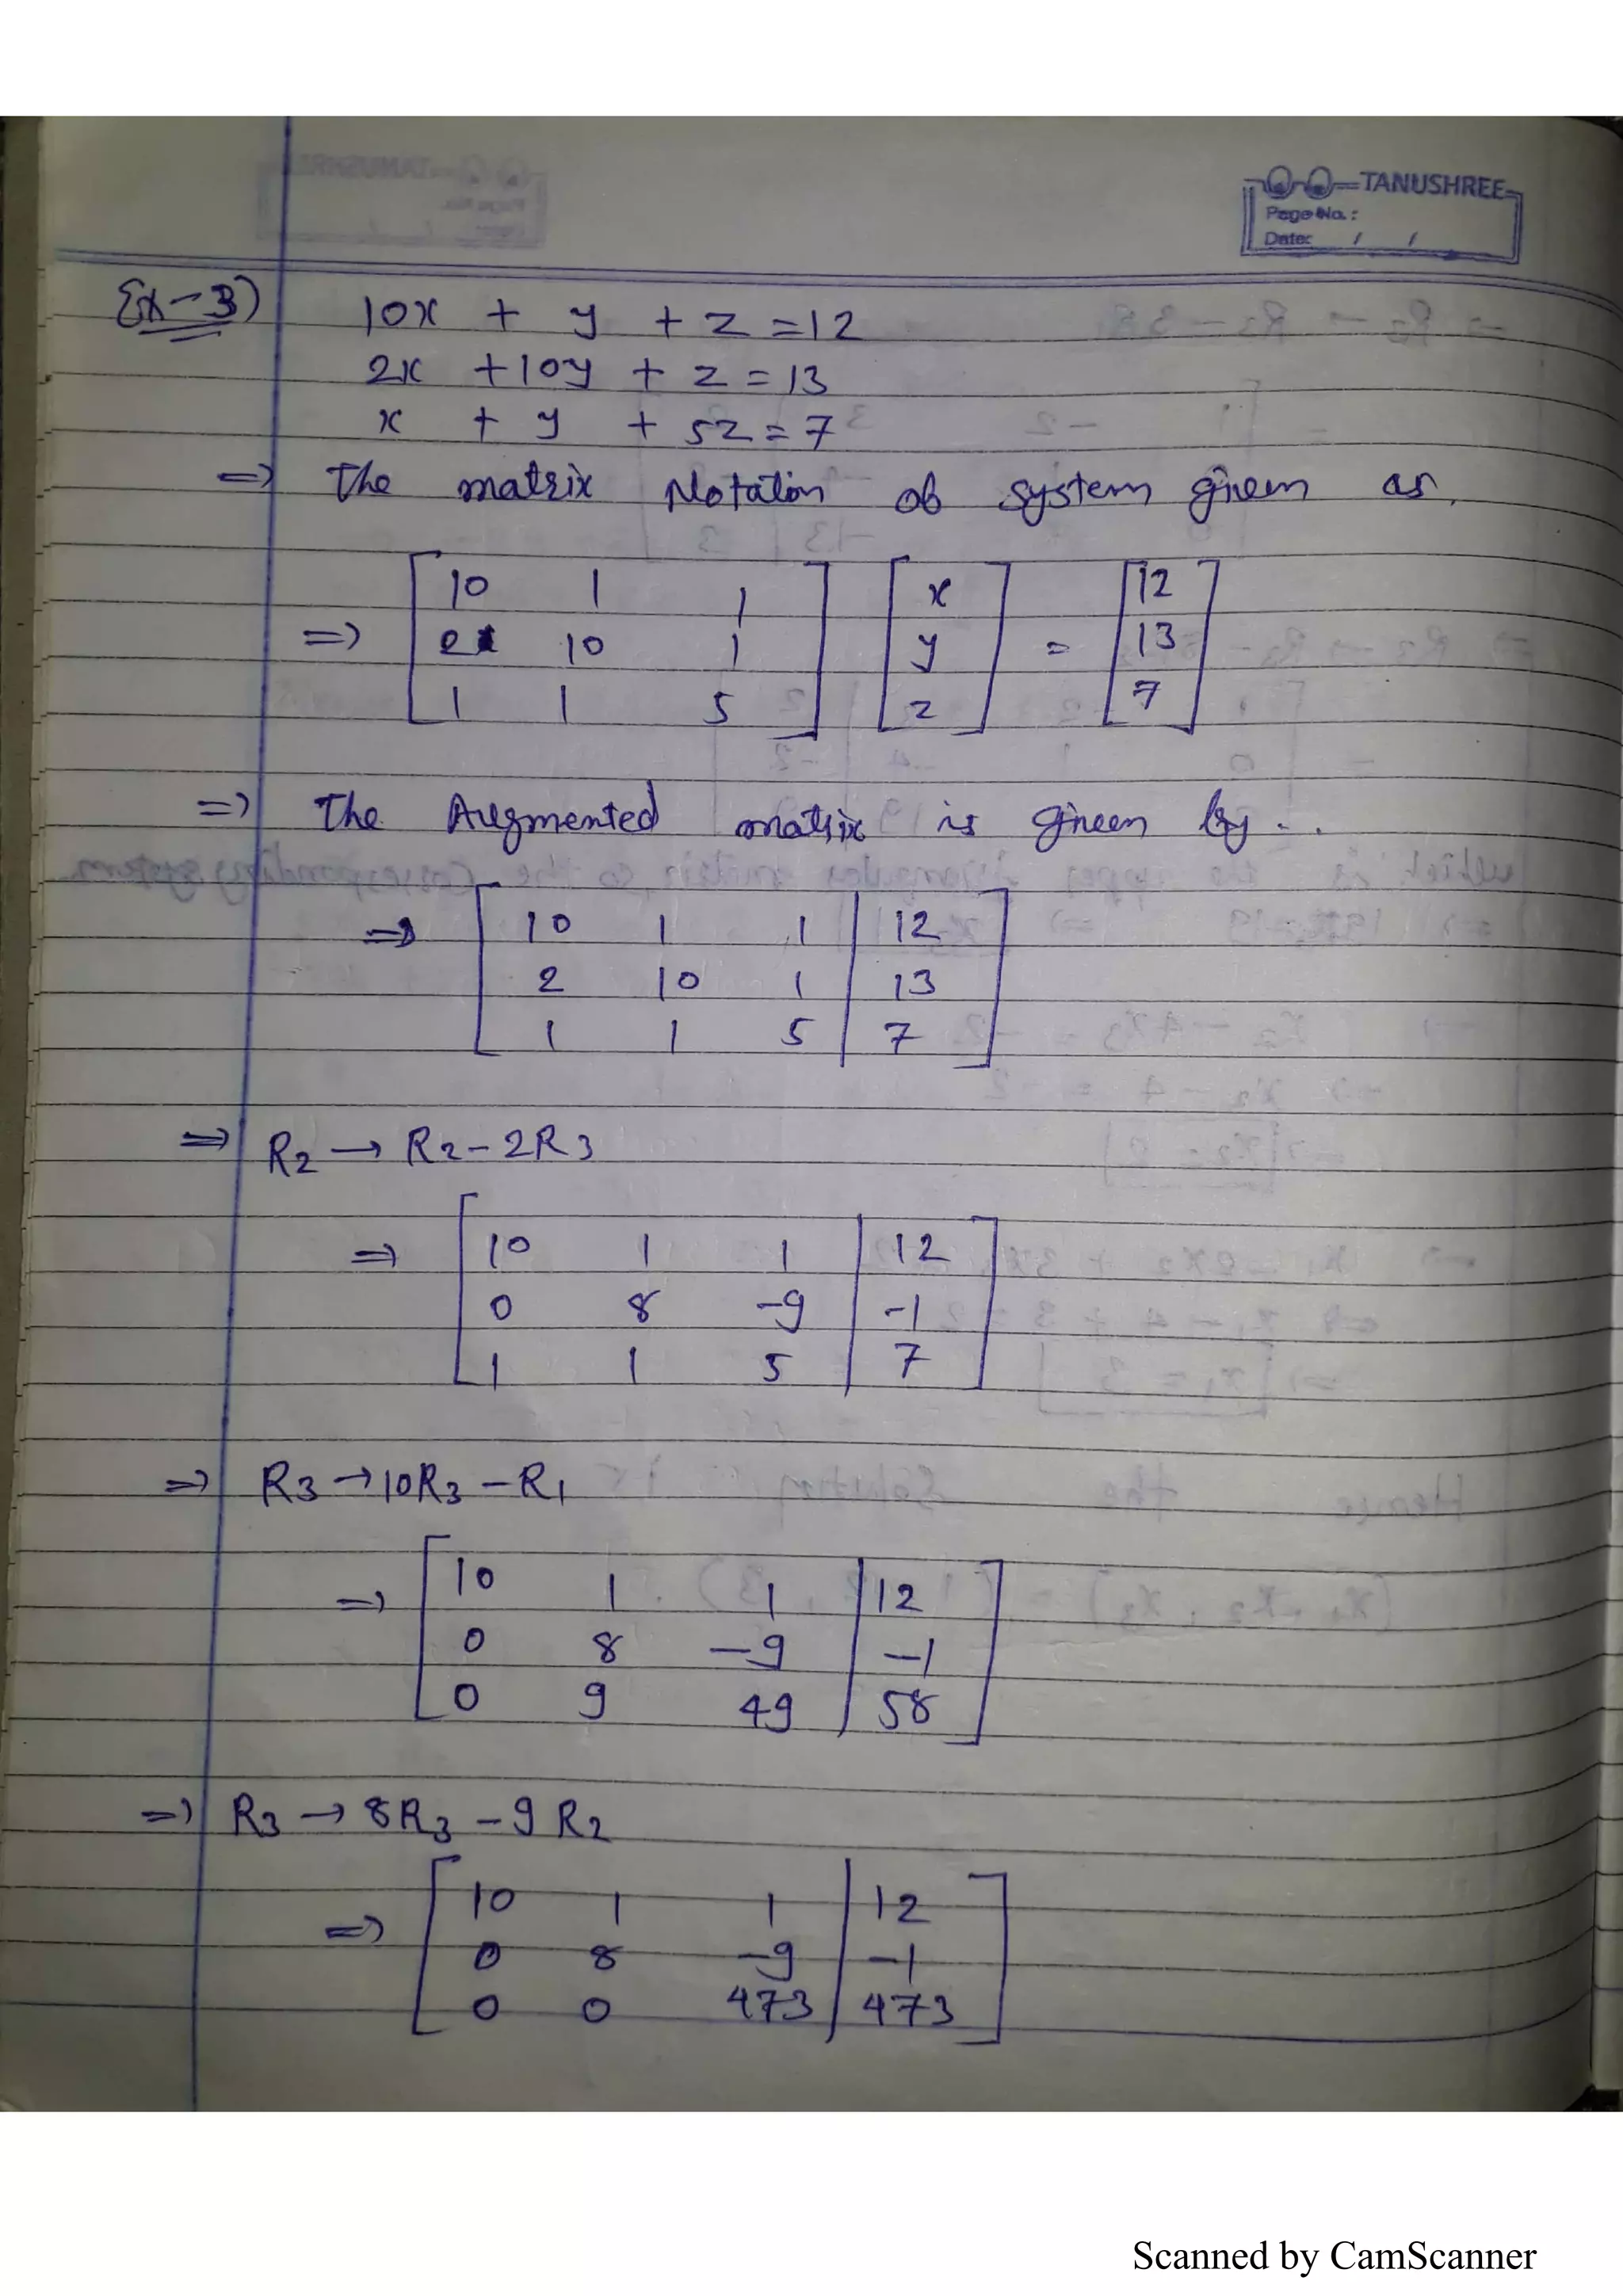 TANUSHREE
Page No.:
Date: / /
Ex-3)
10x + y + z = 12
2x + 10y + z = 13
x + y + 5z = 7
⇒ The matrix Notation of system given as.
⇒ [ 10 1 1 ] [ x ] = [ 12 ]
[ 2 10 1 ] [ y ] [ 13 ]
[ 1 1 5 ] [ z ] [ 7 ]
⇒ The Augmented matrix is given by..
⇒ [ 10 1 1 | 12 ]
[ 2 10 1 | 13 ]
[ 1 1 5 | 7 ]
⇒ R2 → R2 - 2R3
⇒ [ 10 1 1 | 12 ]
[ 0 8 -9 | -1 ]
[ 1 1 5 | 7 ]
⇒ R3 → 10R3 - R1
⇒ [ 10 1 1 | 12 ]
[ 0 8 -9 | -1 ]
[ 0 9 49 | 58 ]
⇒ R3 → 8R3 - 9R2
⇒ [ 10 1 1 | 12 ]
[ 0 8 -9 | -1 ]
[ 0 0 473 | 473 ]
Scanned by CamScanner